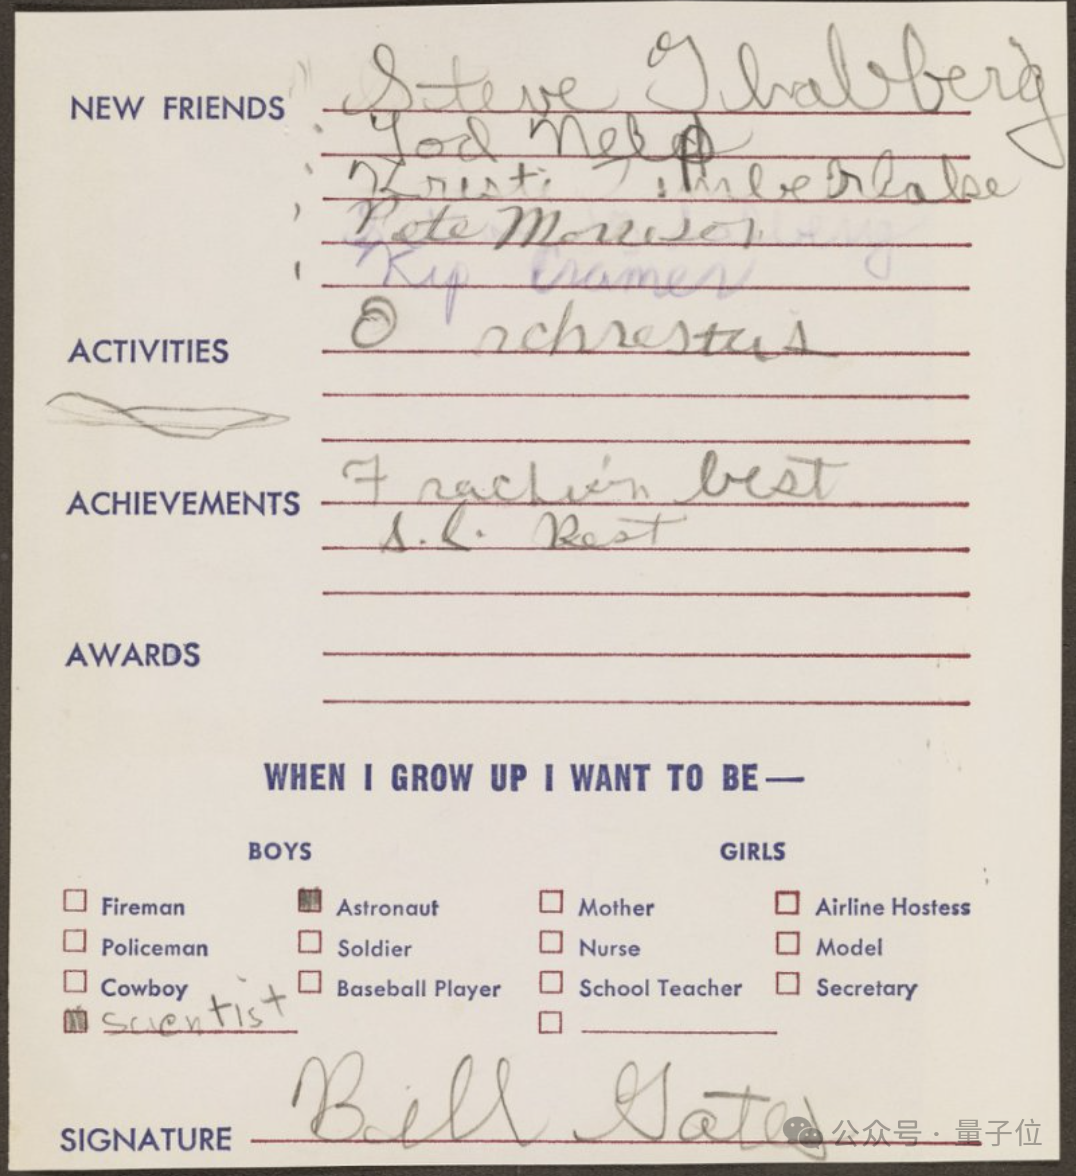 NEW FRIENDS Steve Thalberg
Tod
Kristi Timberlake
Pete Morrison
Kip Cramer
ACTIVITIES O rchrestus
ACHIEVEMENTS Frachion best
s.l. Rest
AWARDS
WHEN I GROW UP I WANT TO BE—
BOYS GIRLS
Fireman Astronaut Mother Airline Hostess
Policeman Soldier Nurse Model
Cowboy Baseball Player School Teacher Secretary
scientist
SIGNATURE Bill Gates
公众号 · 量子位